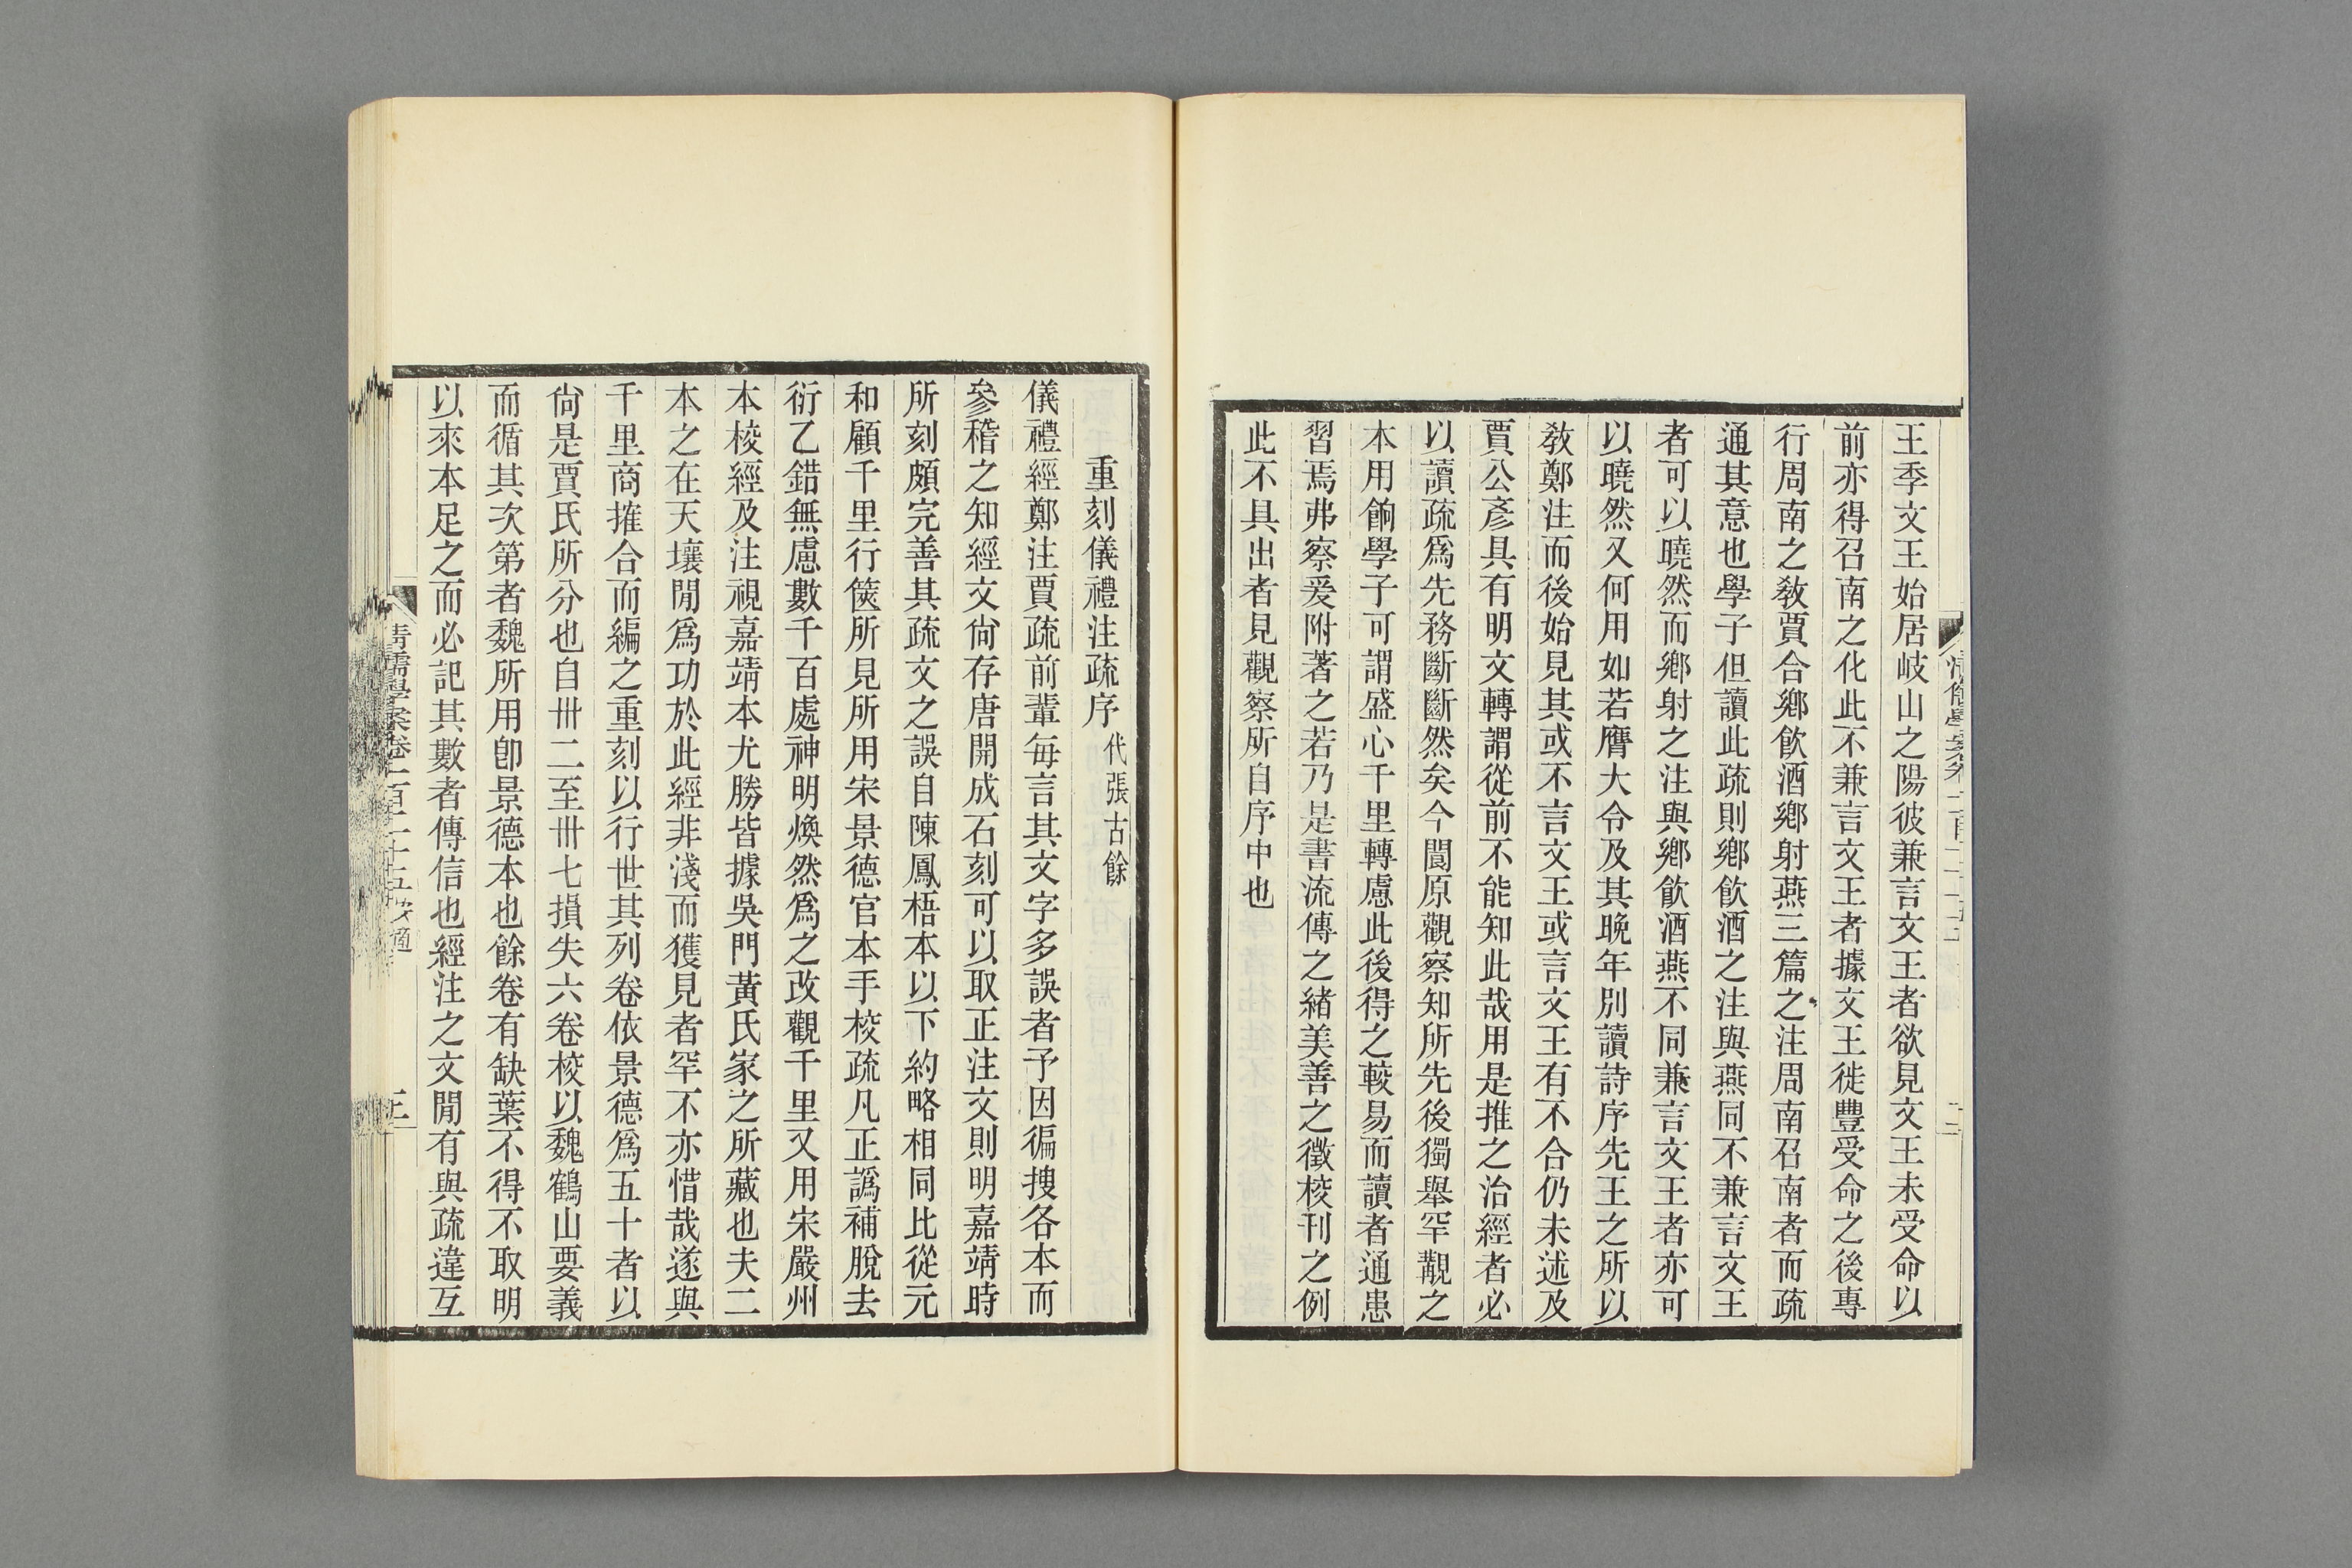 王季文王始居岐山之陽彼兼言文王者欲見文王未受命以
前亦得召南之化此不兼言文王者據文王徙豐受命之後專
行周南之敎賈合鄉飮酒鄉射燕三篇之注周南召南者而疏
通其意也學子但讀此疏則鄉飮酒之注與燕同不兼言文王
者可以曉然而鄉射之注與鄉飮酒燕不同兼言文王者亦可
以曉然又何用如若膺大令及其晚年別讀詩序先王之所以
敎鄭注而後始見其或不言文王或言文王有不合仍未述及
賈公彥具有明文轉謂從前不能知此哉用是推之治經者必
以讀疏爲先務斷斷然矣今閬原觀察知所先後獨舉罕觀之
本用餉學子可謂盛心千里轉慮此後得之較易而讀者通患
習焉弗察爰附著之若乃是書流傳之緖美善之徵校刊之例
此不具出者見觀察所自序中也
重刻儀禮注疏序 代張古餘
儀禮經鄭注賈疏前輩每言其文字多誤者予因徧搜各本而
參稽之知經文尙存唐開成石刻可以取正注文則明嘉靖時
所刻頗完善其疏文之誤自陳鳳梧本以下約略相同比從元
和顧千里行篋所見所用宋景德官本手校疏凡正譌補脫去
衍乙錯無慮數千百處神明煥然爲之改觀千里又用宋嚴州
本校經及注視嘉靖本尤勝皆據吳門黃氏家之所藏也夫二
本之在天壤閒爲功於此經非淺而獲見者罕不亦惜哉遂與
千里商搉合而編之重刻以行世其列卷依景德爲五十者以
尙是賈氏所分也自卅二至卅七損失六卷校以魏鶴山要義
而循其次第者魏所用卽景德本也餘卷有缺葉不得不取明
以來本足之而必記其數者傳信也經注之文閒有與疏違互
清儒學案卷一百二十五